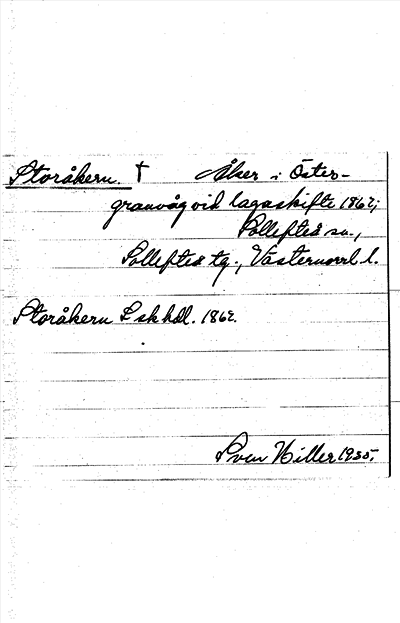 Storåkern. † Åker i Öster-
granvåg vid lagaskifte 1862;
Sollefteå sn.,
Sollefteå tg., Västernorrl. l.
Storåkern L sk hdl. 1862.
Sven Hiller 1935.